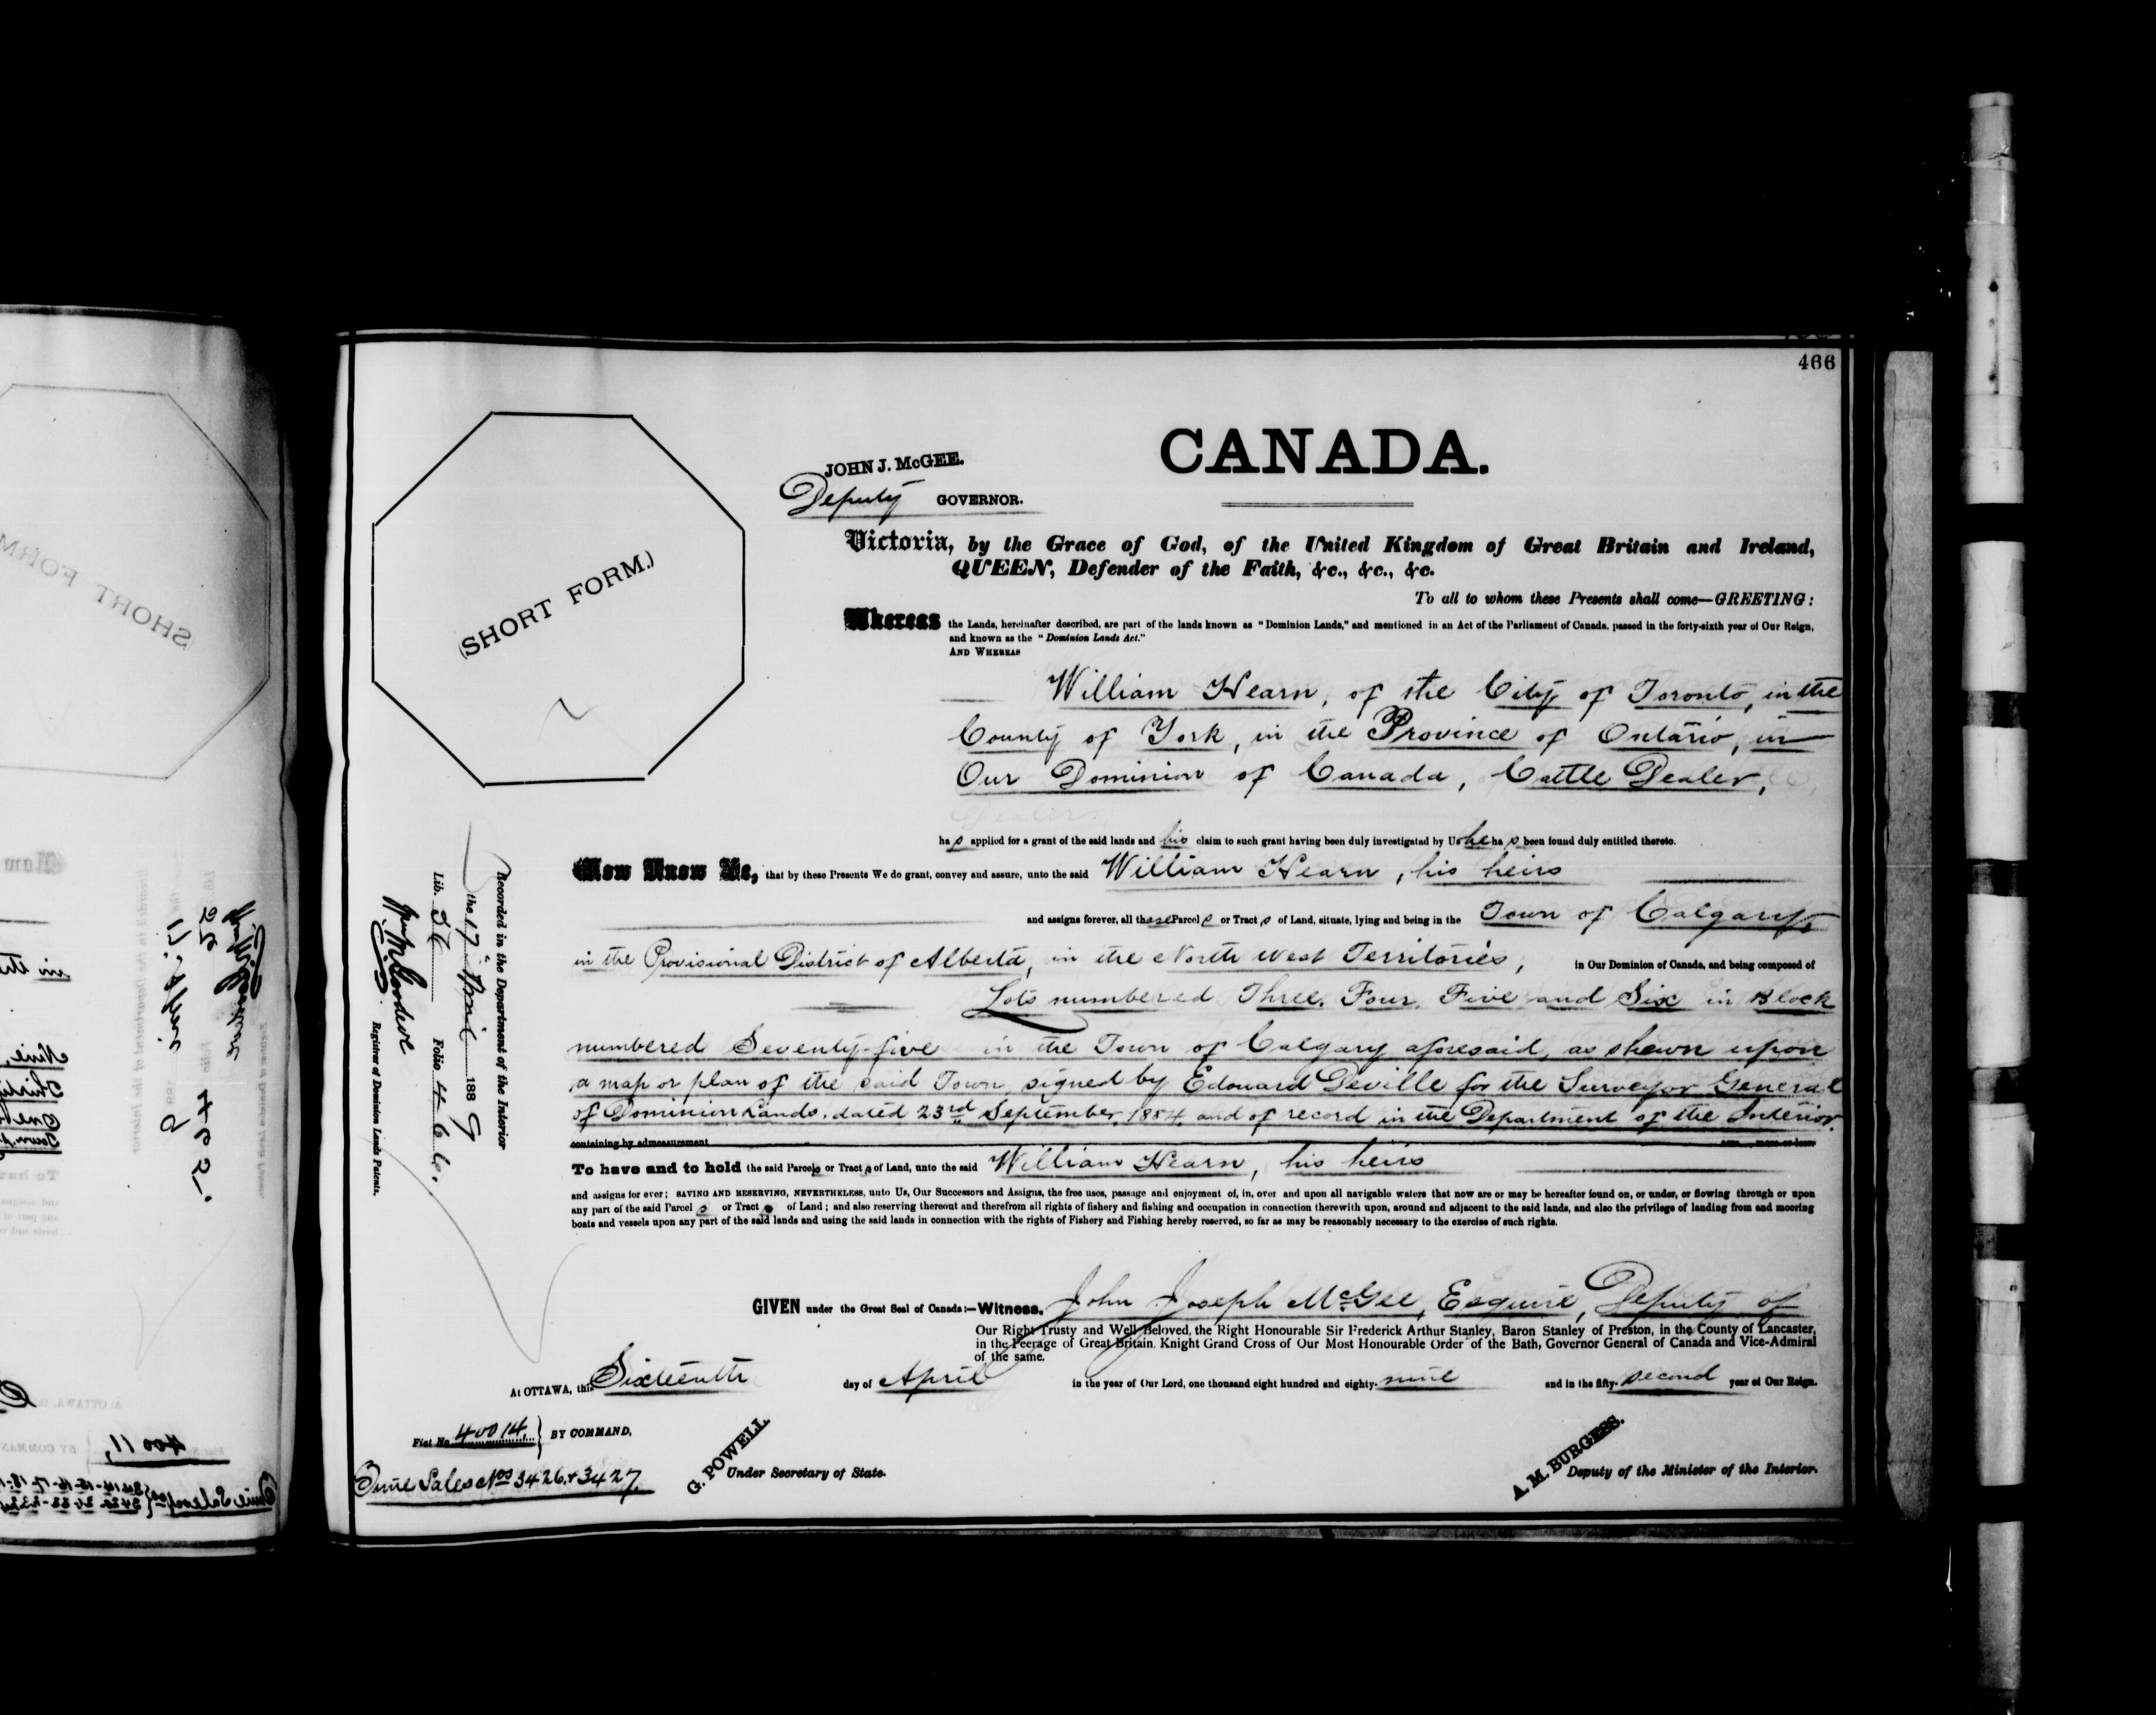 466
CANADA.
JOHN J. McGEE.
Deputy GOVERNOR.
(SHORT FORM.)
Victoria, by the Grace of God, of the United Kingdom of Great Britain and Ireland,
QUEEN, Defender of the Faith, &c., &c., &c.
To all to whom these Presents shall come—GREETING:
Whereas the Lands, hereinafter described, are part of the lands known as "Dominion Lands," and mentioned in an Act of the Parliament of Canada, passed in the forty-sixth year of Our Reign,
and known as the "Dominion Lands Act."
AND WHEREAS
William Hearn, of the City of Toronto, in the
County of York, in the Province of Ontario, in
Our Dominion of Canada, Cattle Dealer,
has applied for a grant of the said lands and his claim to such grant having been duly investigated by Us he has been found duly entitled thereto.
Now Know Ye, that by these Presents We do grant, convey and assure, unto the said William Hearn, his heirs
and assigns forever, all those Parcels or Tracts of Land, situate, lying and being in the Town of Calgary,
in the Provisional District of Alberta, in the North West Territories, in Our Dominion of Canada, and being composed of
Lots numbered Three, Four, Five and Six in Block
numbered Seventy-five in the Town of Calgary aforesaid, as shewn upon
a map or plan of the said Town signed by Edouard Deville for the Surveyor General
of Dominion Lands, dated 23rd September, 1884, and of record in the Department of the Interior.
containing by admeasurement acres, more or less.
To have and to hold the said Parcels or Tracts of Land, unto the said William Hearn, his heirs
and assigns for ever; SAVING AND RESERVING, NEVERTHELESS, unto Us, Our Successors and Assigns, the free uses, passage and enjoyment of, in, over and upon all navigable waters that now are or may be hereafter found on, or under, or flowing through or upon
any part of the said Parcels or Tracts of Land; and also reserving thereout and therefrom all rights of fishery and fishing and occupation in connection therewith upon, around and adjacent to the said lands, and also the privilege of landing from and mooring
boats and vessels upon any part of the said lands and using the said lands in connection with the rights of Fishery and Fishing hereby reserved, so far as may be reasonably necessary to the exercise of such rights.
GIVEN under the Great Seal of Canada:—Witness, John Joseph McGee, Esquire, Deputy of
Our Right Trusty and Well Beloved, the Right Honourable Sir Frederick Arthur Stanley, Baron Stanley of Preston, in the County of Lancaster,
in the Peerage of Great Britain, Knight Grand Cross of Our Most Honourable Order of the Bath, Governor General of Canada and Vice-Admiral
of the same.
At OTTAWA, this Sixteenth day of April in the year of Our Lord, one thousand eight hundred and eighty-nine and in the fifty-second year of Our Reign.
Fiat No. 40014. BY COMMAND,
Sales Nos 3426 & 3427.
G. POWELL
Under Secretary of State.
A. M. BURGESS.
Deputy of the Minister of the Interior.
Recorded in the Department of the Interior
the 17th April 1889
Lib. Folio 466.
Registrar of Dominion Lands Patents.
SHORT FORM
40011,